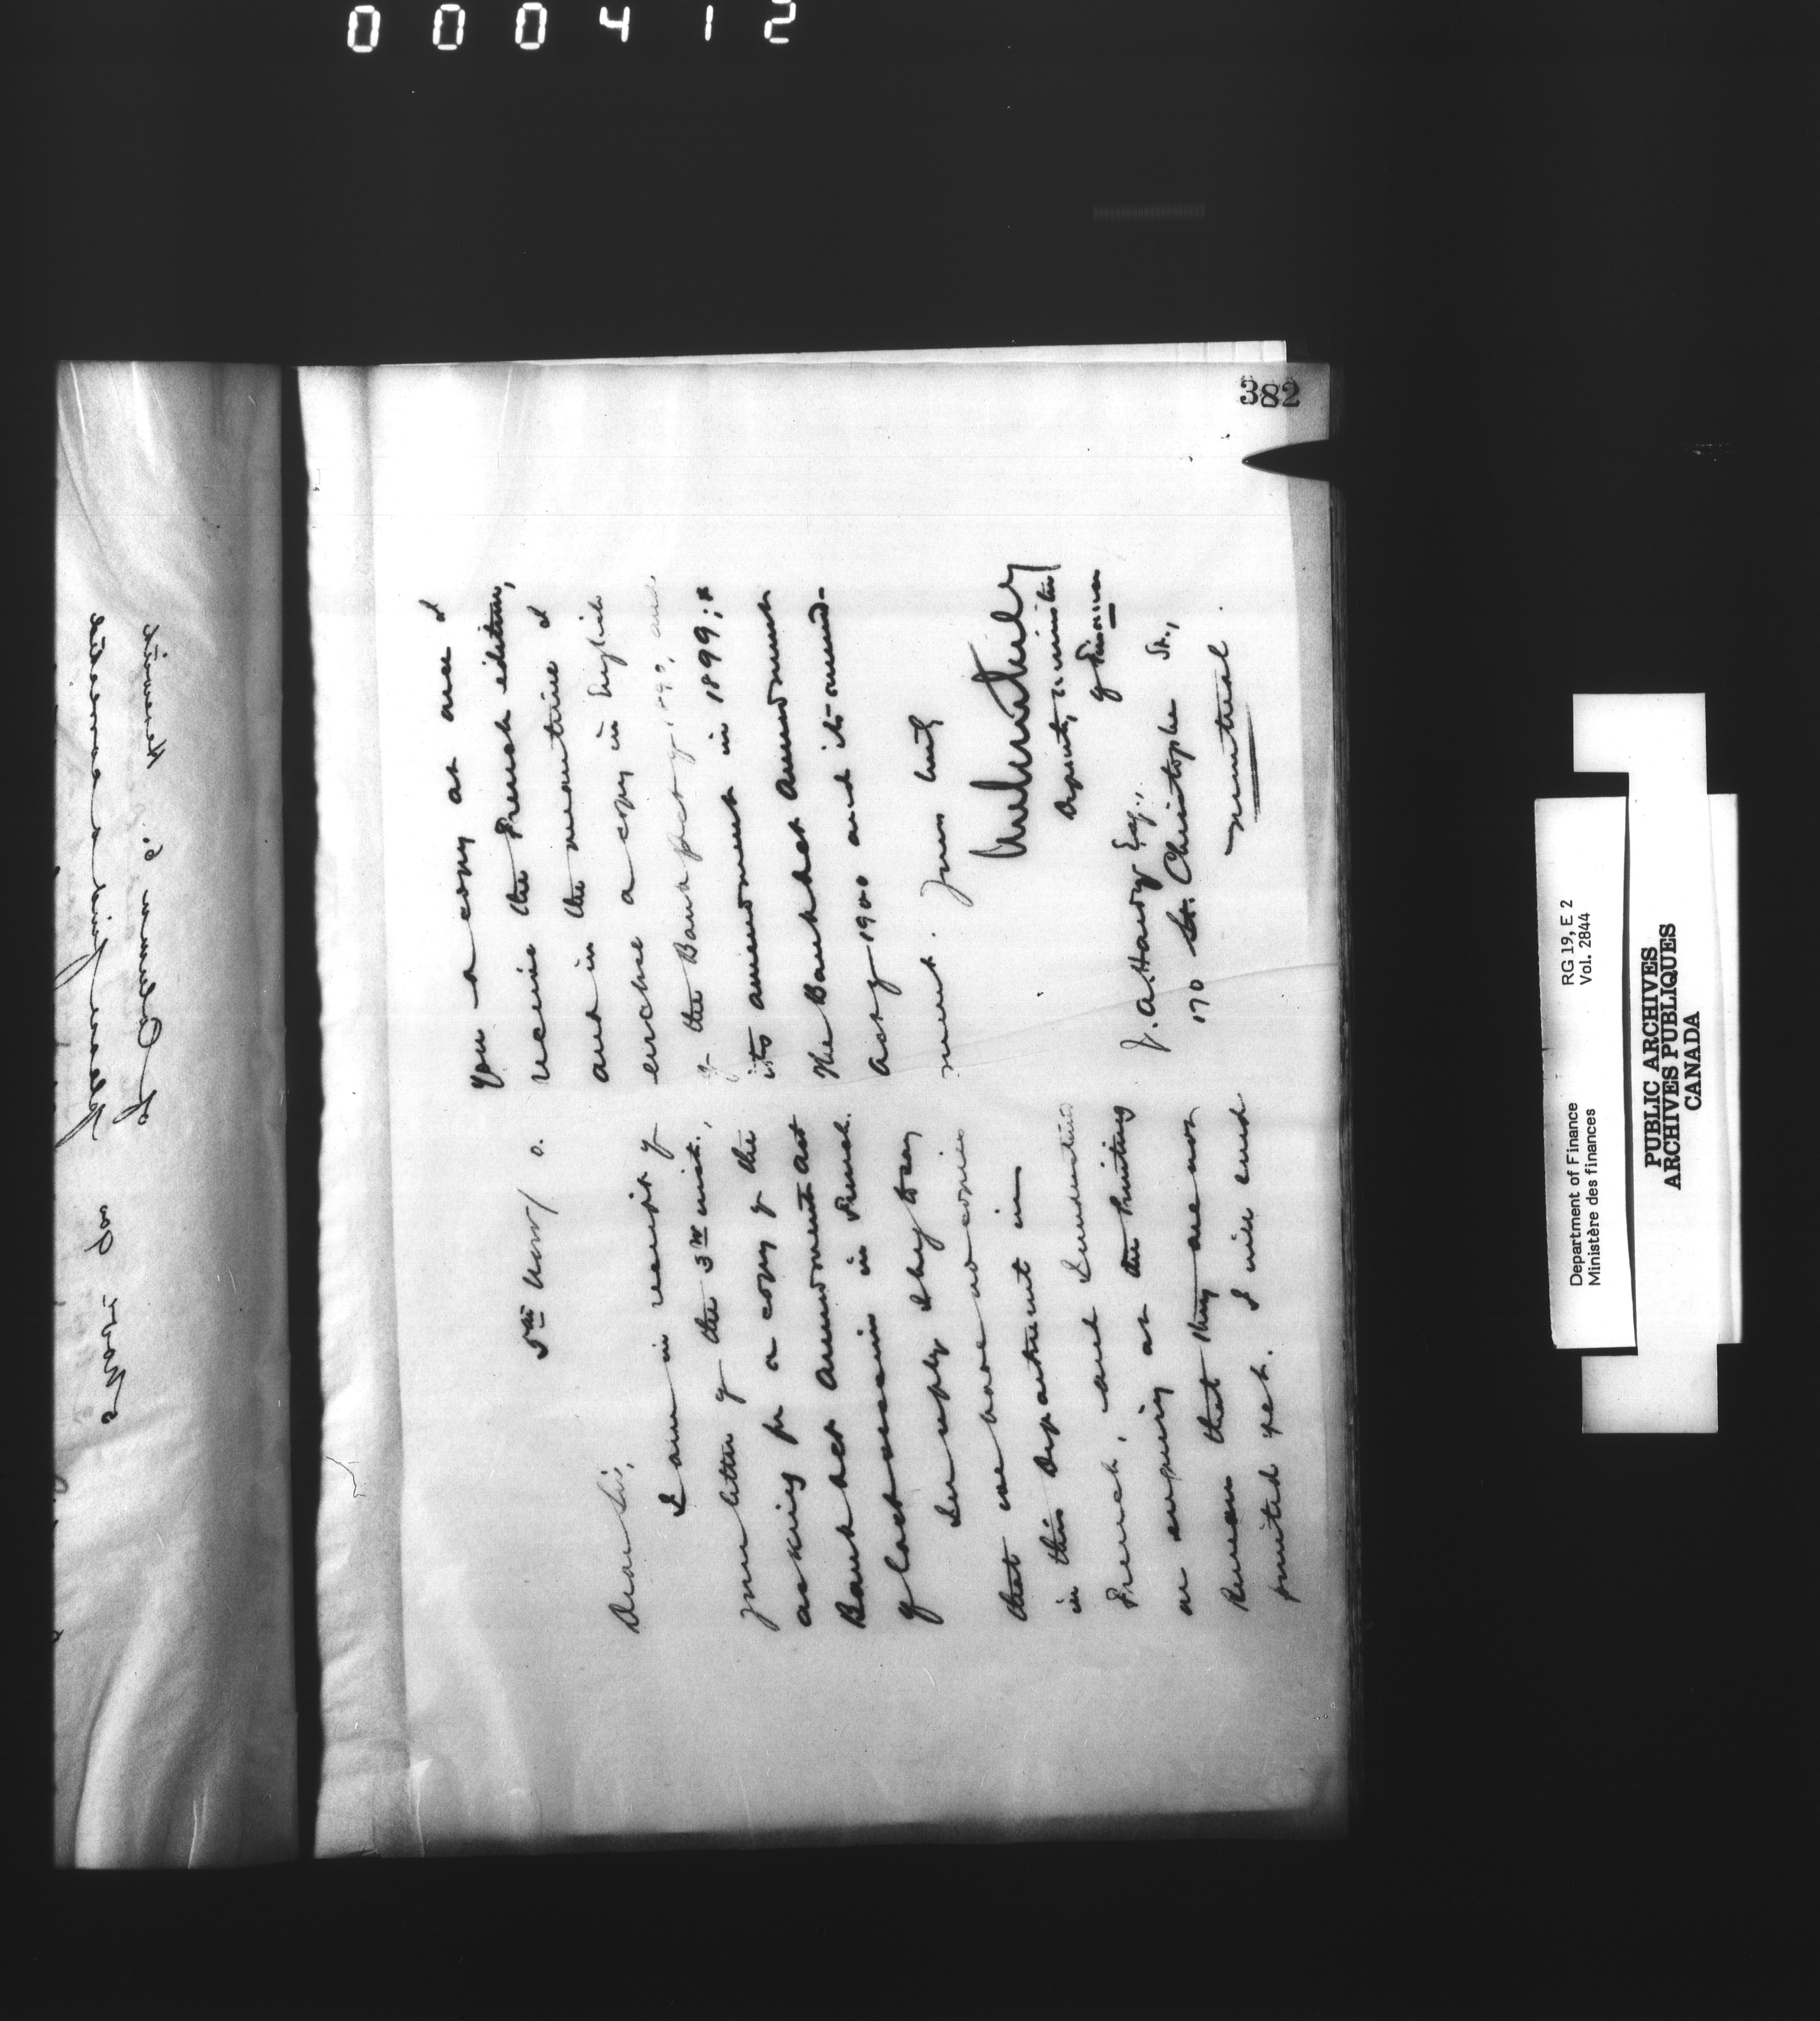 000412
382
5th Nov/ 0.
Dear Sir,
I am in receipt of
your letter of the 3rd inst.,
asking for a copy of the
Bank Act Amendment Act
of last session in French.
In reply I beg to say
that we have no copies
in this Department in
French, and I understand
on enquiry at the Printing
Bureau that they are not
printed yet. I will send
you a copy as soon as I
receive the French edition,
and in the meantime I
enclose a copy in English
of the Bank Act of 1890, and
its amendment in 1899; &
the Bank Act Amendment
Act of 1900 and its amend-
ment. Yours truly
Deputy Minister
of Finance
J. A. Hardy Esq.,
170 St. Christophe St.,
Montreal
RG 19, E 2
Vol. 2844
Department of Finance
Ministère des finances
PUBLIC ARCHIVES
ARCHIVES PUBLIQUES
CANADA